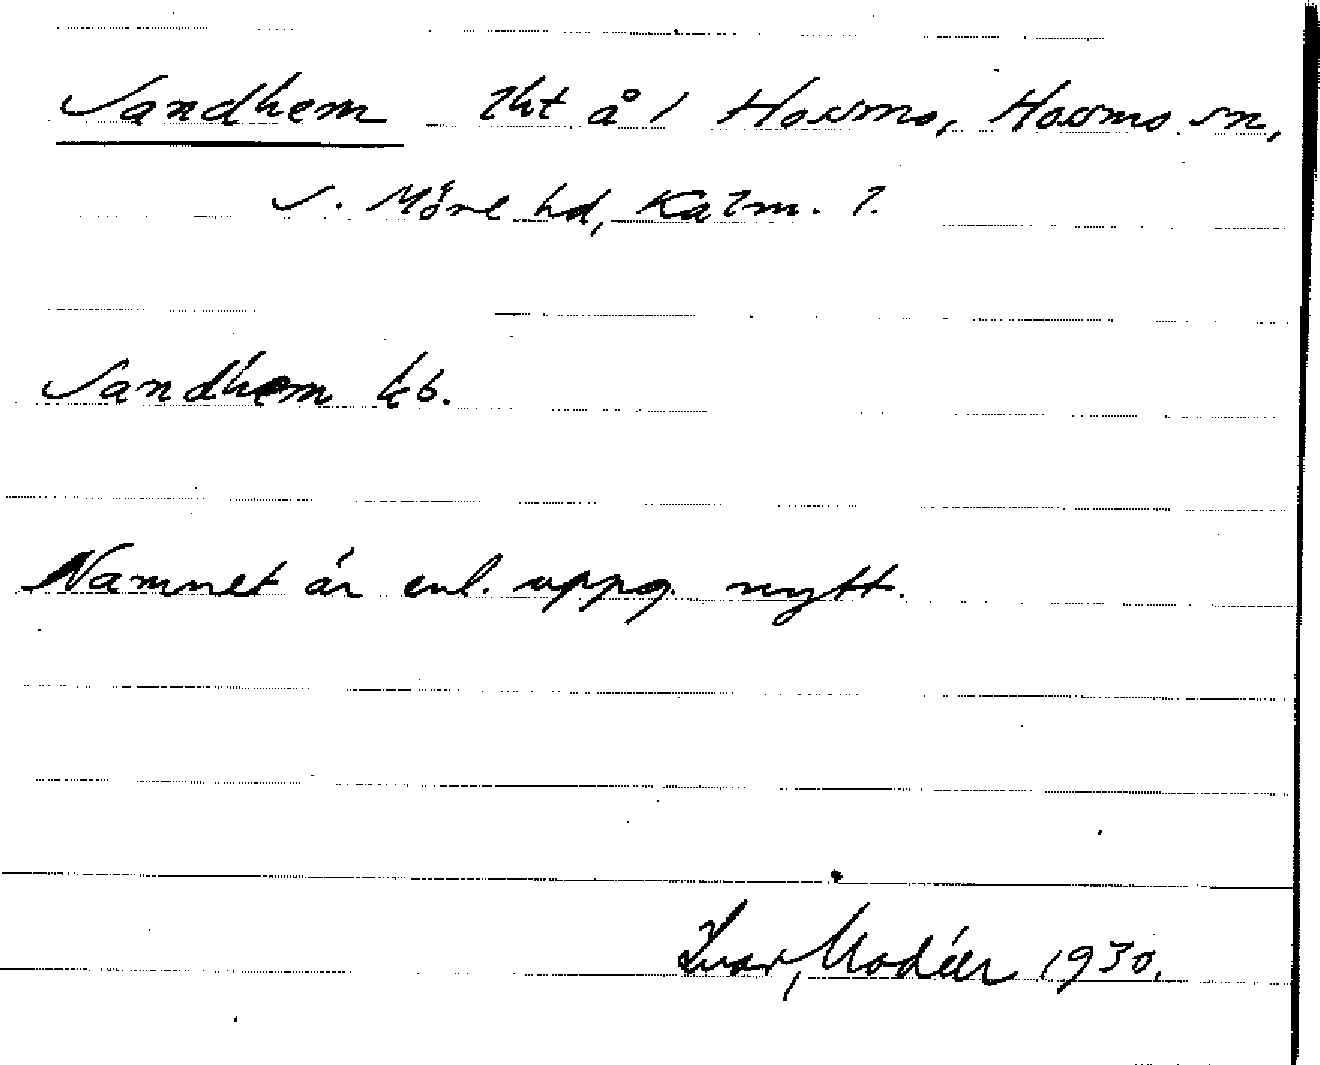 Sandhem lht å 1 Hossmo, Hossmo sn,
S. Möre hd, Kalm. l.
Sandhem kb.
Namnet är enl. uppg. nytt.
Ivar Modéer 1930.